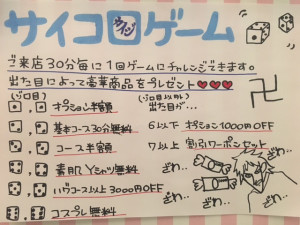 サイコロゲーム
ご来店30分毎に1回ゲームにチャレンジできます。
出た目によって豪華商品をプレゼント♥♥♥
(ゾロ目)
(ゾロ目以外)
出た目が…
オプション半額
基本コース30分無料
6以下 オプション1000円OFF
コース半額
7以上 割引クーポンセット
素肌Yシャツ無料
ざわ…
ざわ…
コース以上3000円OFF
コスプレ無料
ざわ…
ざわ…